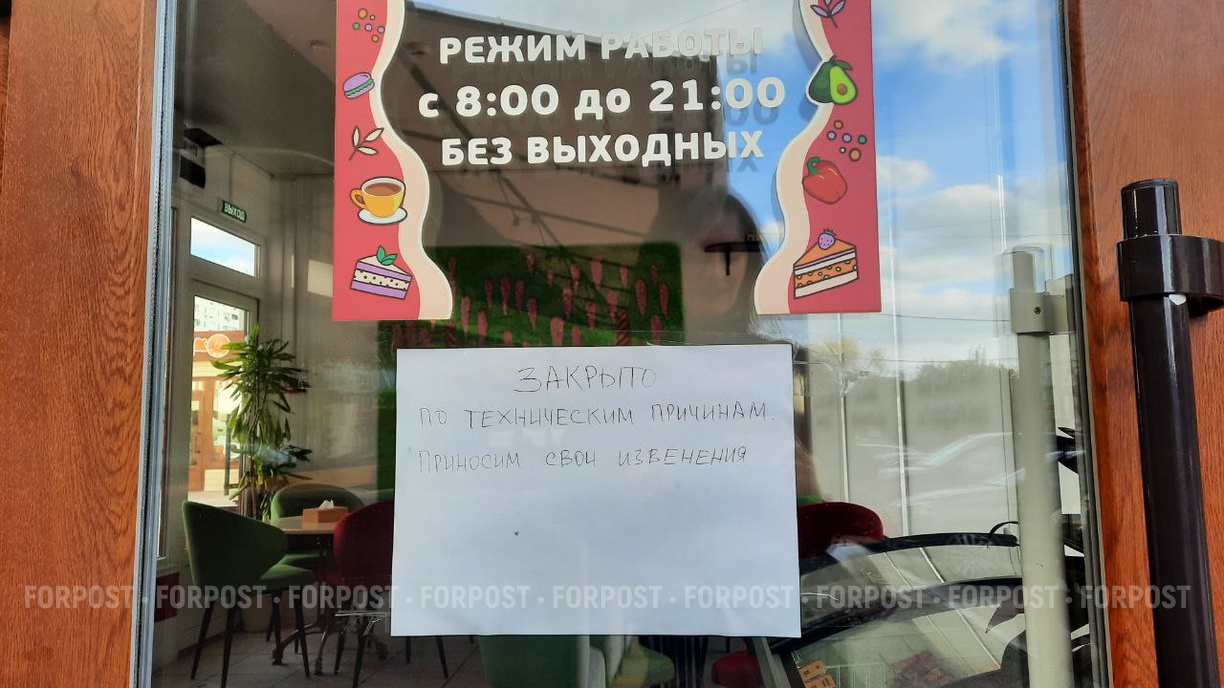 РЕЖИМ РАБОТЫ
с 8:00 до 21:00
БЕЗ ВЫХОДНЫХ
ВЫХОД
ЗАКРЫТО
ПО ТЕХНИЧЕСКИМ ПРИЧИНАМ.
ПРИНОСИМ СВОИ ИЗВЕНЕНИЯ
FORPOST • FORPOST • FORPOST • FORPOST • FORPOST • FORPOST • FORPOST • FORPOST • FORPOST